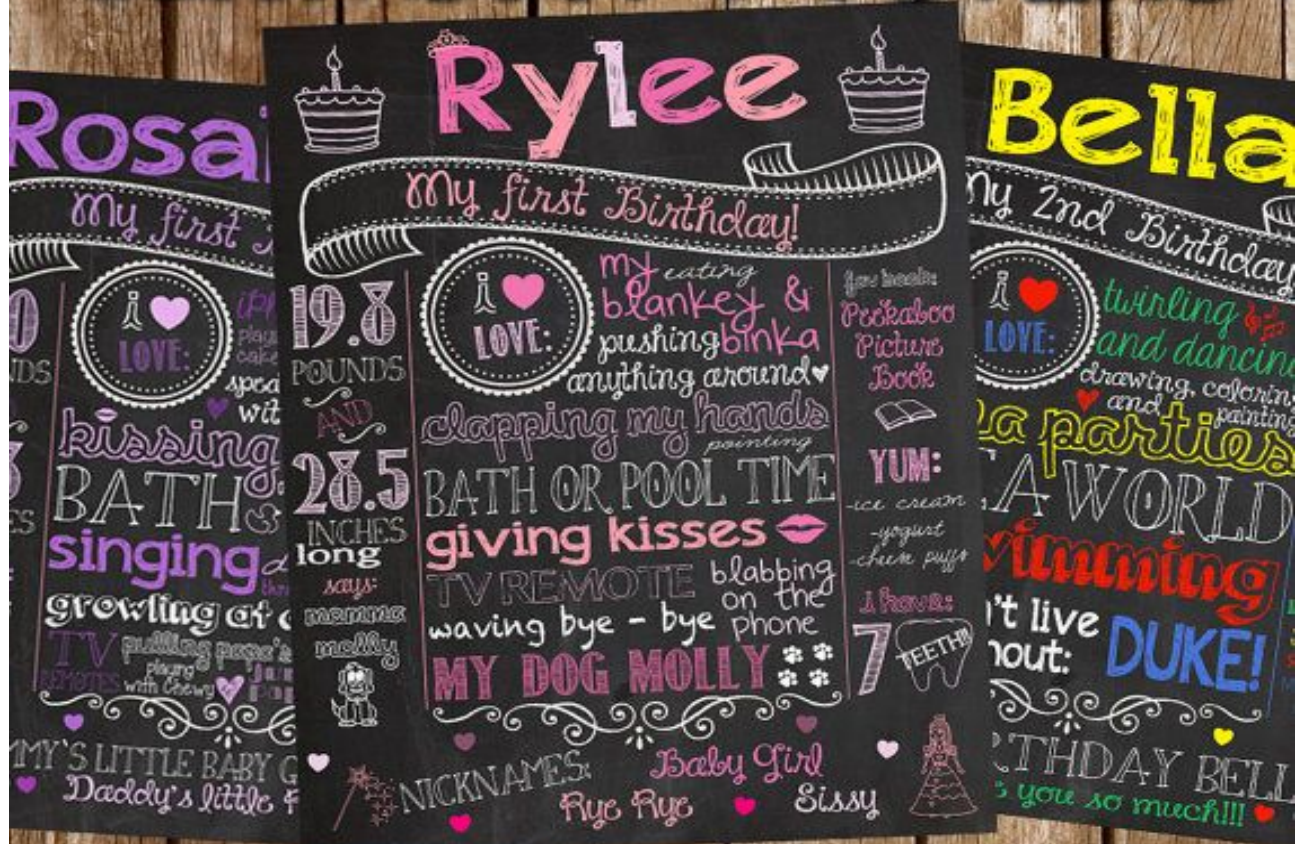 Rosa
My first
i
LOVE:
kissing
BATH
singing
growling at
TV
REMOTES
pulling papa's
playing
with Chewy
MY'S LITTLE BABY G
Daddy's little
Rylee
My first Birthday!
19.8
POUNDS
AND
28.5
INCHES
long
says:
momma
molly
i
LOVE:
my eating
blankey &
pushing binka
anything around
clapping my hands
pointing
BATH OR POOL TIME
giving kisses
TV REMOTE blabbing
on the
waving bye - bye phone
MY DOG MOLLY
fav book:
Peekaboo
Picture
Book
YUM:
-ice cream
-yogurt
-cheese puffs
i have:
7 TEETH!!
NICKNAMES:
Baby Girl
Rye Rye
Sissy
Bella
My 2nd Birthday
i
LOVE:
twirling
and dancing
drawing, colorin
and painting
ea parties
A WORLD
wimming
't live
hout:
DUKE!
RTHDAY BELL
s you so much!!!